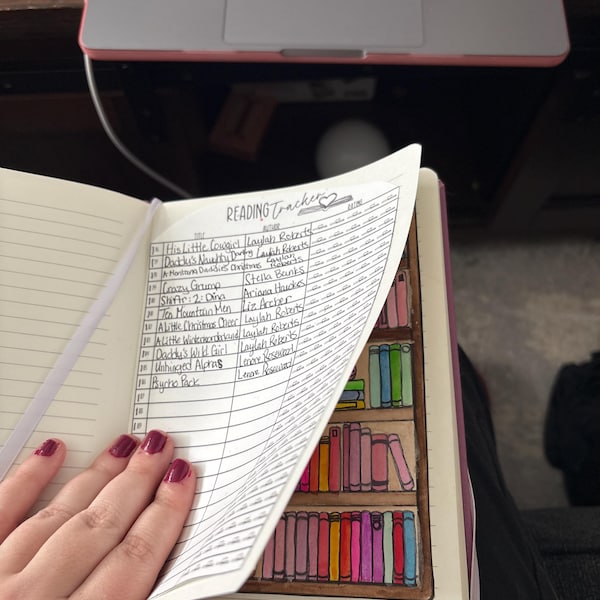 READING tracker
TITLE AUTHOR RATING
His Little Cowgirl Laylah Roberts
Daddy's Naughty Darling Laylah Roberts
A Montana Daddies Christmas Laylah Roberts
Crazy Grump Stella Banks
Shift: 2: Dina Ariana Hawkes
Ten Mountain Men Liz Archer
A Little Christmas Cheer Laylah Roberts
A Little Winter Laylah Roberts
Daddy's Wild Girl Laylah Roberts
Unhinged Alphas Lenore Rosewood
Psycho Pack Lenore Rosewood